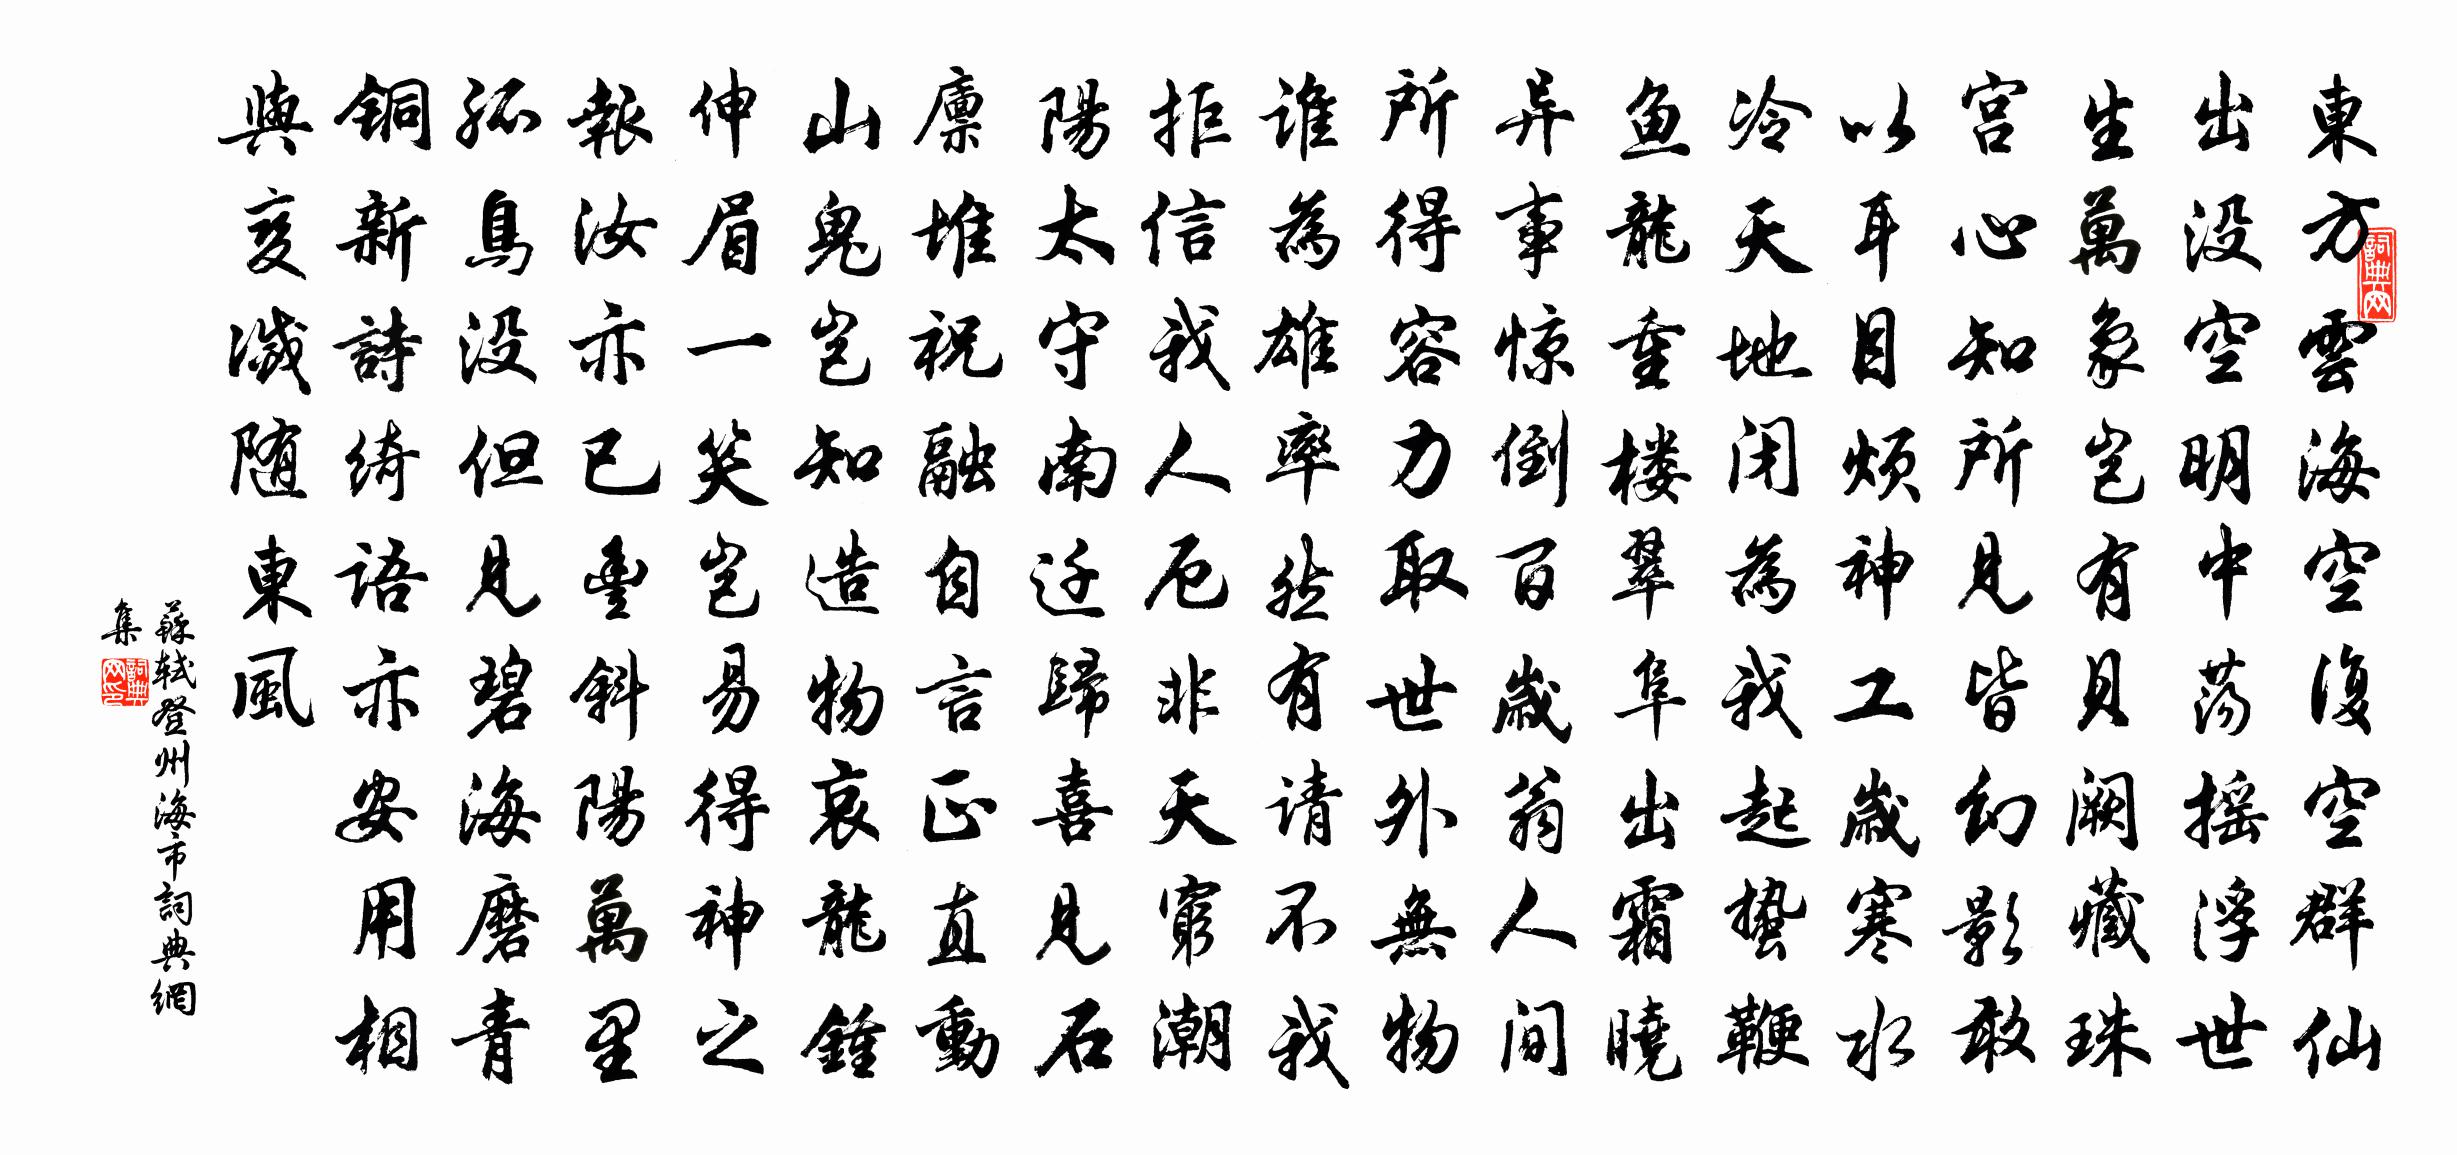 東方雲海空復空群仙
出没空明中荡摇浮世
生萬象岂有貝阙藏珠
宫心知所見皆幻影敢
以耳目烦神工歲寒水
冷天地闭為我起蛰鞭
鱼龍重楼翠阜出霜曉
异事惊倒百歲翁人间
所得容力取世外無物
谁為雄率然有请不我
拒信我人厄非天窮潮
陽太守南迁歸喜見石
廪堆祝融自言正直動
山鬼岂知造物哀龍鍾
伸眉一笑岂易得神之
報汝亦已豊斜陽萬里
孤鳥没但見碧海磨青
銅新詩绮語亦安用相
與变滅随東風
蘇轼登州海市詞典網
集
詞典网
詞典网印